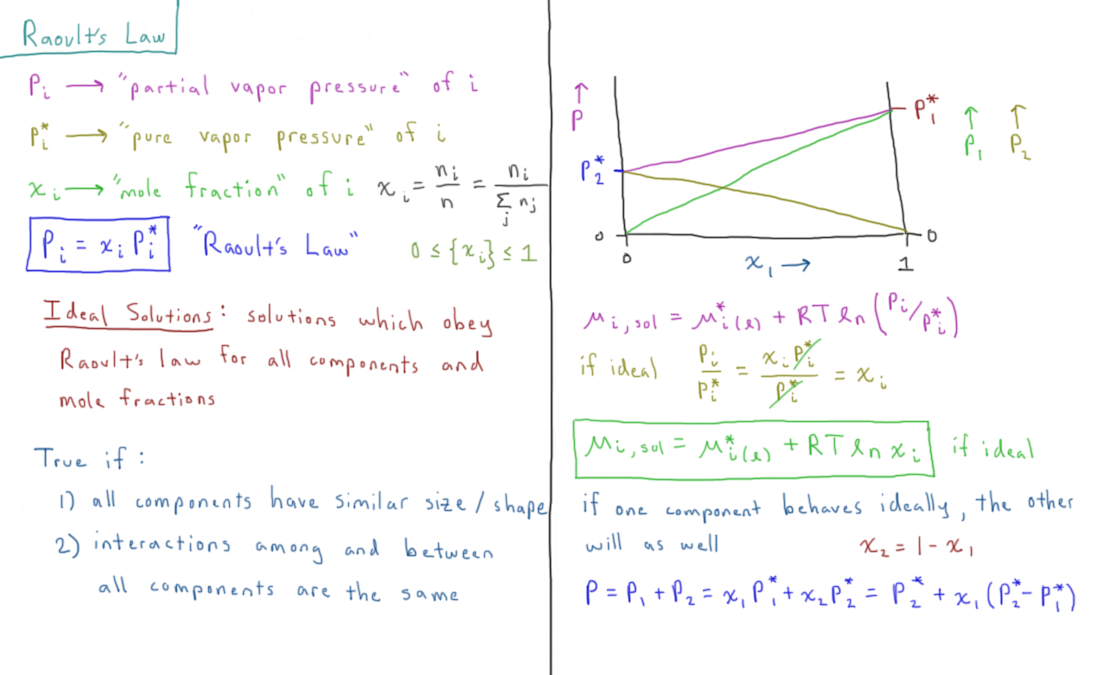 Raoult's Law
Pᵢ → "partial vapor pressure" of i
Pᵢ* → "pure vapor pressure" of i
xᵢ → "mole fraction" of i xᵢ = nᵢ/n = nᵢ/∑ⱼ nⱼ
Pᵢ = xᵢ Pᵢ* "Raoult's Law" 0 ≤ {xᵢ} ≤ 1
Ideal Solutions: solutions which obey
Raoult's law for all components and
mole fractions
True if:
1) all components have similar size/shape
2) interactions among and between
all components are the same
↑ P
P₁*
↑ P₁
↑ P₂
P₂*
0
0
0
x₁ →
1
μᵢ,sol = μ*ᵢ(l) + RT ln (Pᵢ/Pᵢ*)
if ideal Pᵢ/Pᵢ* = xᵢ Pᵢ*/Pᵢ* = xᵢ
μᵢ,sol = μ*ᵢ(l) + RT ln xᵢ if ideal
if one component behaves ideally, the other
will as well x₂ = 1 - x₁
P = P₁ + P₂ = x₁ P₁* + x₂ P₂* = P₂* + x₁ (P₂* - P₁*)